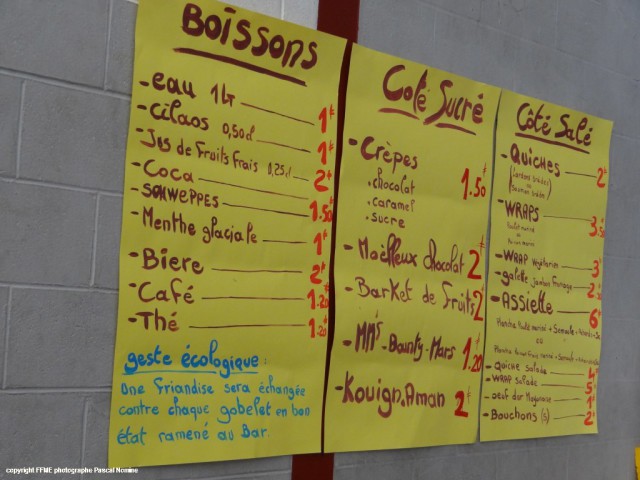 Boissons
- eau 1Lt 1€
- Cilaos 0,50cl 1€
- Jus de Fruits frais 0,25cl 2€
- Coca
- SCHWEPPES 1.50
- Menthe glaciale 1€
- Biere 2€
- Café 1.20
- Thé 1.20
geste écologique:
Une Friandise sera échangée
contre chaque gobelet en bon
état ramené au Bar.
Coté Sucré
- Crèpes 1.50€
. chocolat
. caramel
. sucre
- Moëlleux chocolat 2€
- BarKet de Fruits 2€
- MM's. Bounty. Mars 1.20
- Kouign. Aman 2€
Côté Salé
- Quiches 2€
- WRAPS 3.50
- WRAP Vegetarien 3€
- galette Jambon fromage 2.50
- Assiette 6€
ou
- Quiche salade 4€
- WRAP salade 5€
- oeuf dur Mayonnaise 1€
- Bouchons (5) 2€
copyright FFME photographe Pascal Nomine